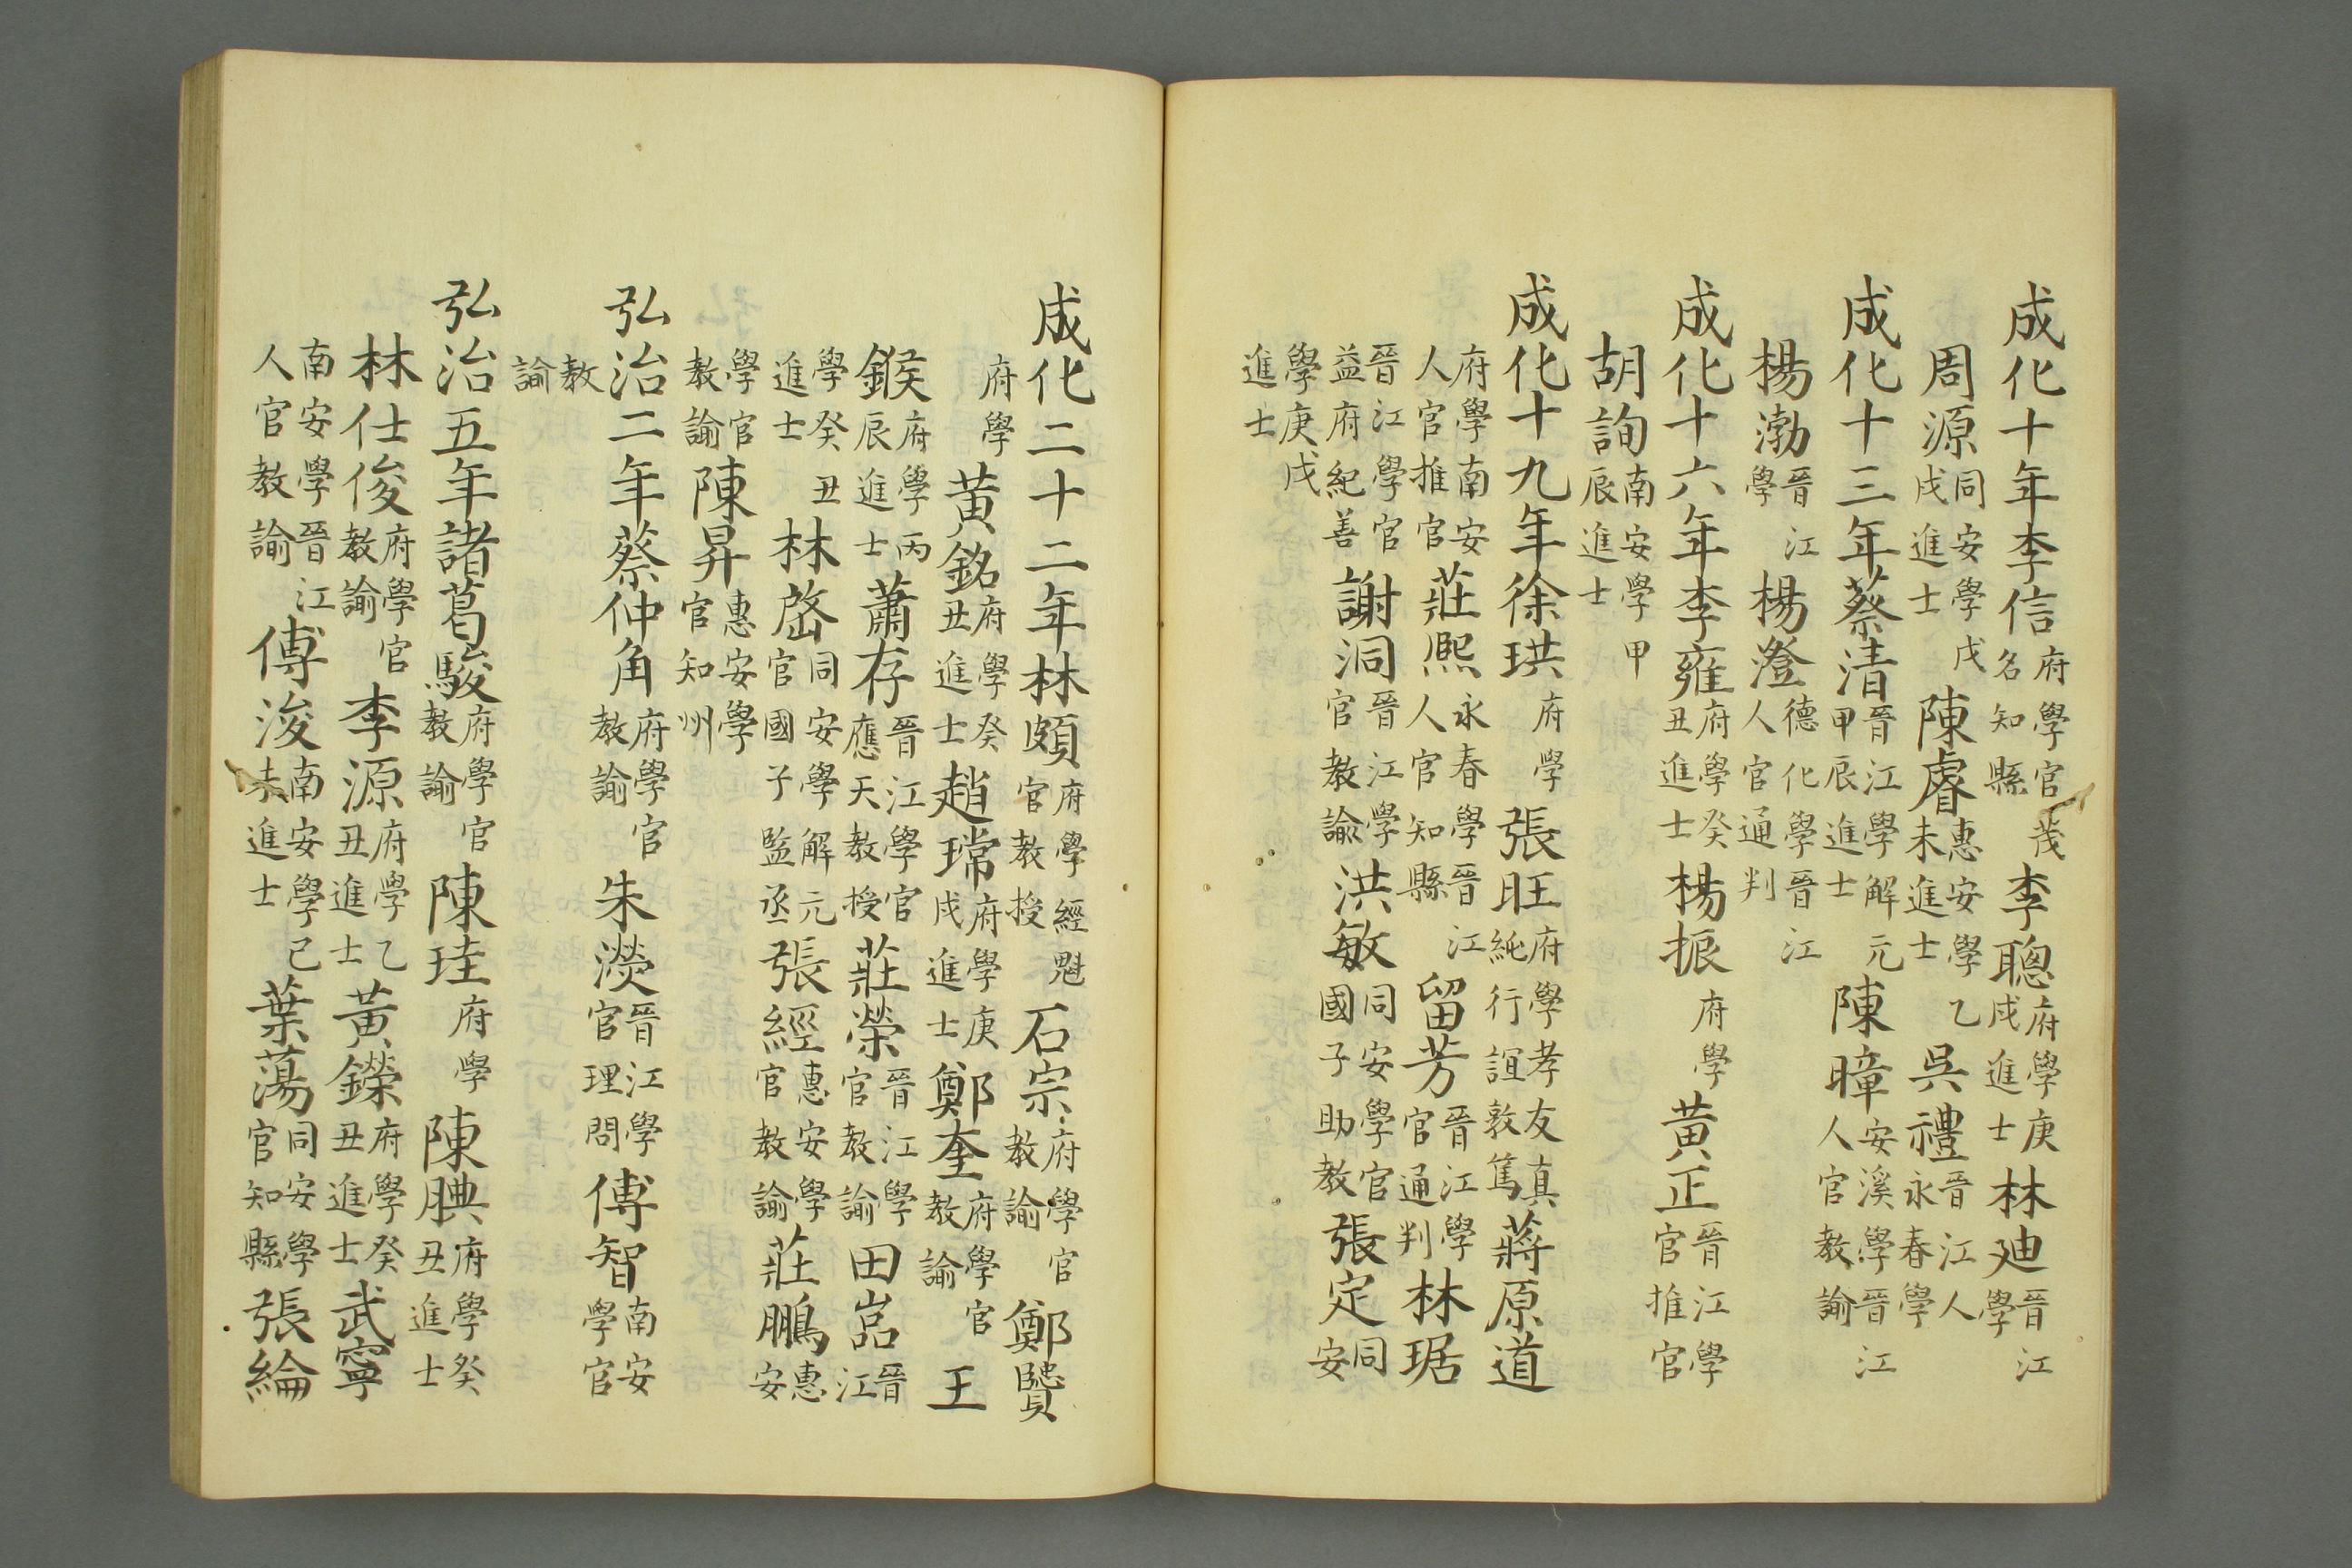 成化十年李信府學官茂名知縣李聰府學庚戌進士林廸晉江學
周源同安學戊戌進士陳睿惠安學乙未進士吳禮晉江人永春學
成化十三年蔡清晉江學解元甲辰進士陳暲安溪學晉江人官教諭
楊渤晉江學楊澄德化學晉江人官通判
成化十六年李雍府學癸丑進士楊振府學黃正晉江學官推官
胡詢南安學甲辰進士
成化十九年徐珙府學張旺府學孝友真純行誼敦篤蔣原道
府學南安人官推官莊熈永春學晉江人官知縣留芳晉江學官通判林琚
晉江學官益府紀善謝洞晉江學官教諭洪敏同安學官國子助教張定同安
學庚戌進士
成化二十二年林頗府學經魁官教授石宗府學官教諭鄭贒
府學黃銘府學癸丑進士趙瑺府學庚戌進士鄭奎府學官教諭王
鍭府學丙辰進士蕭存晉江學官應天教授莊榮晉江學官教諭田嵓晉江
學癸丑進士林啓同安學解元官國子監丞張經惠安學官教諭莊鵬惠安
學官教諭陳昇惠安學官知州
弘治二年蔡仲角府學官教諭朱濙晉江學官理問傅智南安學官
教諭
弘治五年諸葛駿府學官教諭陳珪府學陳腆府學癸丑進士
林仕俊府學官教諭李源府學乙丑進士黃鑅府學癸丑進士武寧
南安學晉江人官教諭傅浚南安學己未進士葉蕩同安學官知縣張綸